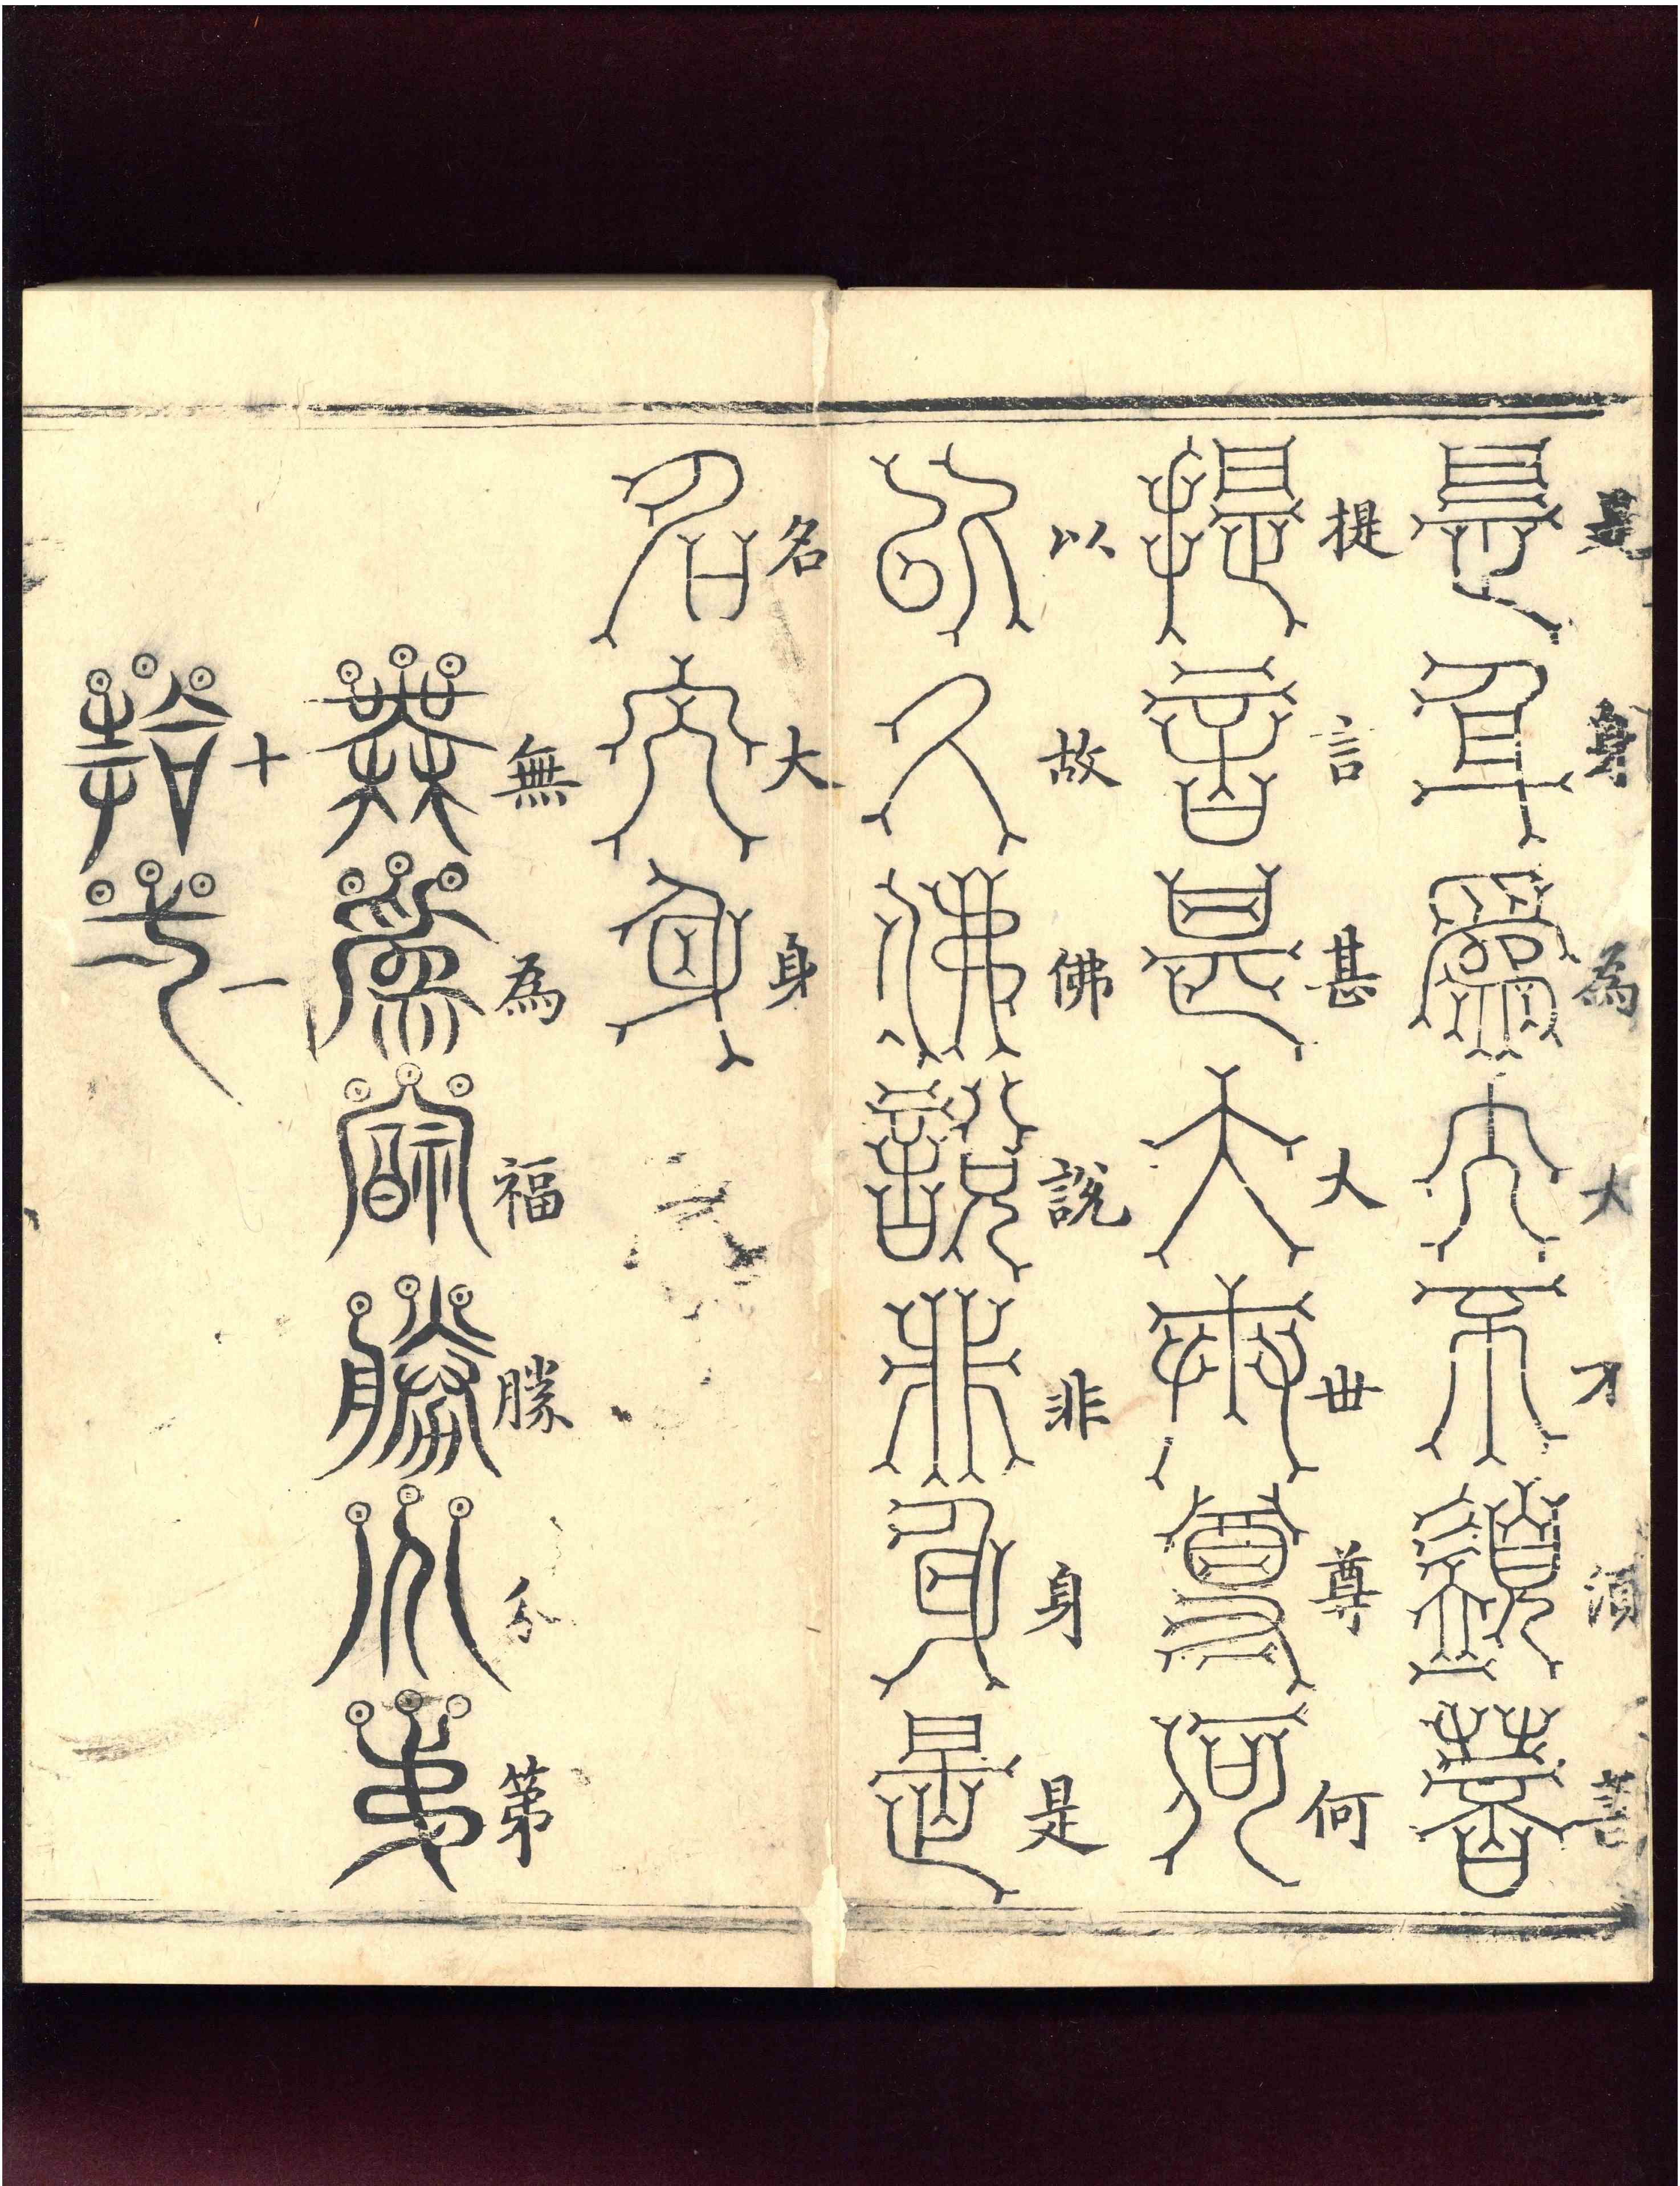 是身為大不須菩
提言甚大世尊何
以故佛說非身是
名大身
無為福勝分第
十一